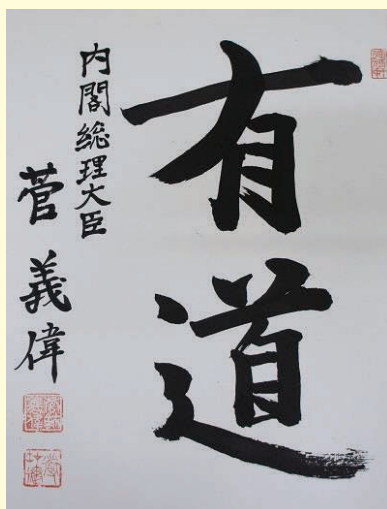 有道
内閣総理大臣
菅義偉